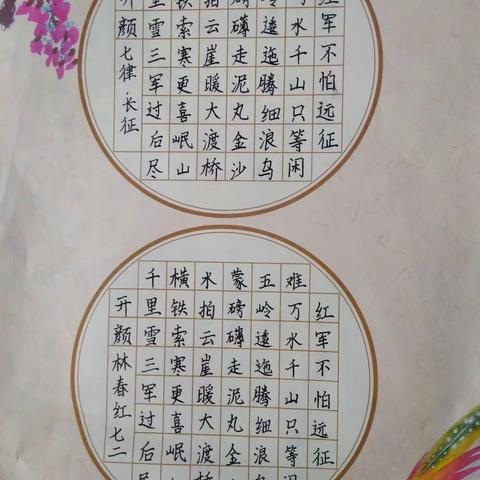 红军不怕远征
水千山只等闲
岭逶迤腾细浪乌
磅礴走泥丸金沙
拍云崖暖大渡桥
铁索寒更喜岷山
里雪三军过后尽
开颜七律·长征
红军不怕远征
难万水千山只等闲
五岭逶迤腾细浪乌
蒙磅礴走泥丸金
水拍云崖暖大渡桥
横铁索寒更喜岷
千里雪三军过后尽
开颜林春红七二